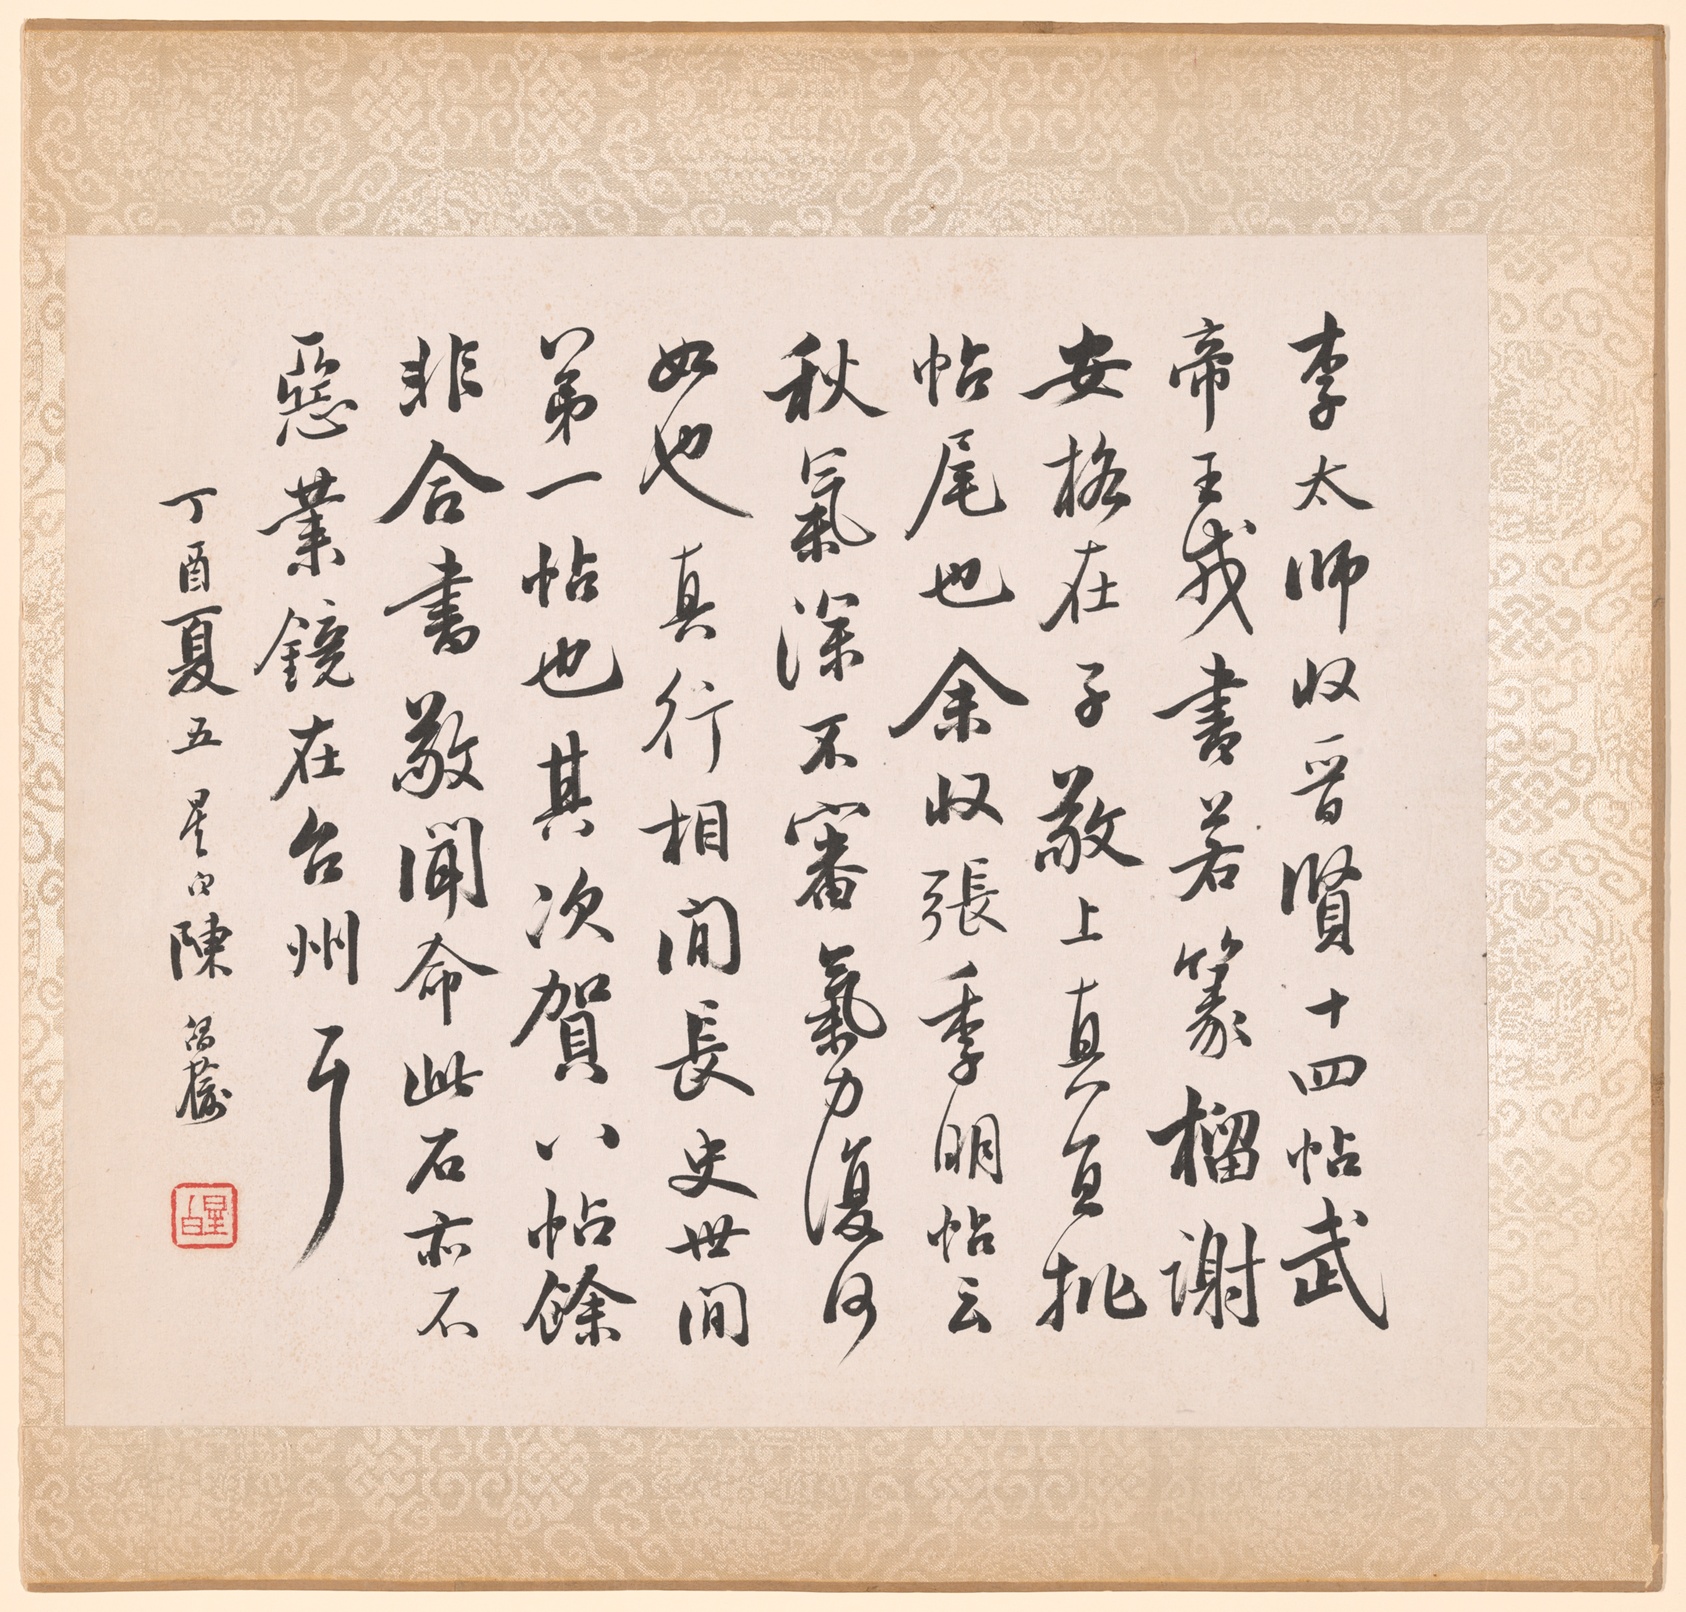 李太師收晉賢十四帖武
帝王戎書若篆榴謝
安格在子敬上真宜批
帖尾也余收張季明帖云
秋氣深不審氣力復何
如也真行相間長史世間
第一帖也其次賀八帖餘
非合書敬聞命此石亦不
惡業鏡在台州
丁酉夏五星白陳
星白